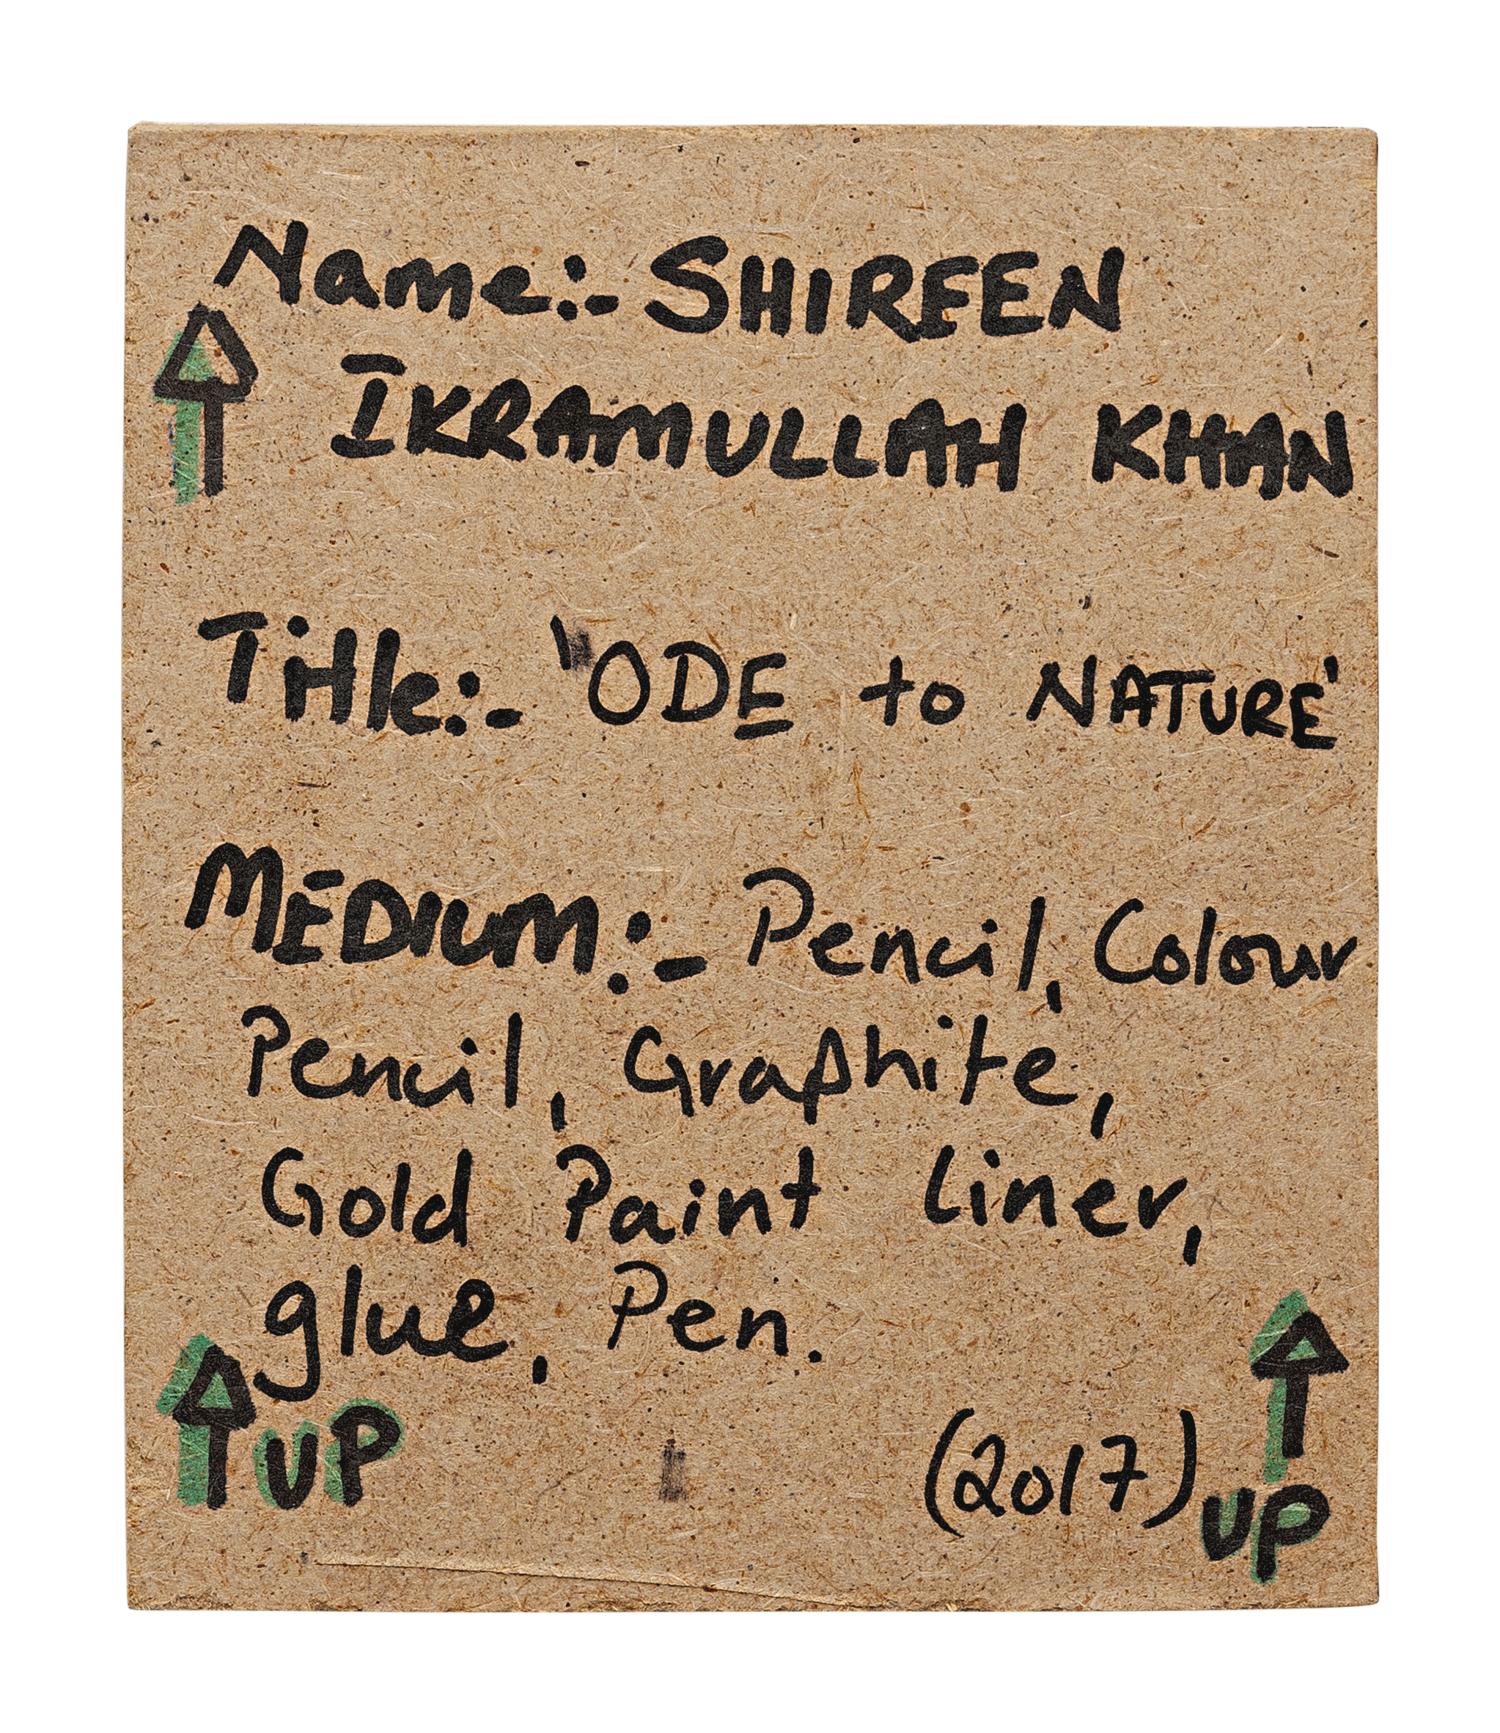 Name:- SHIREEN
IKRAMULLAH KHAN
Title:- 'ODE to NATURE'
MEDIUM:- Pencil, Colour
Pencil, Graphite,
Gold Paint Liner,
glue, Pen.
UP
(2017)
UP